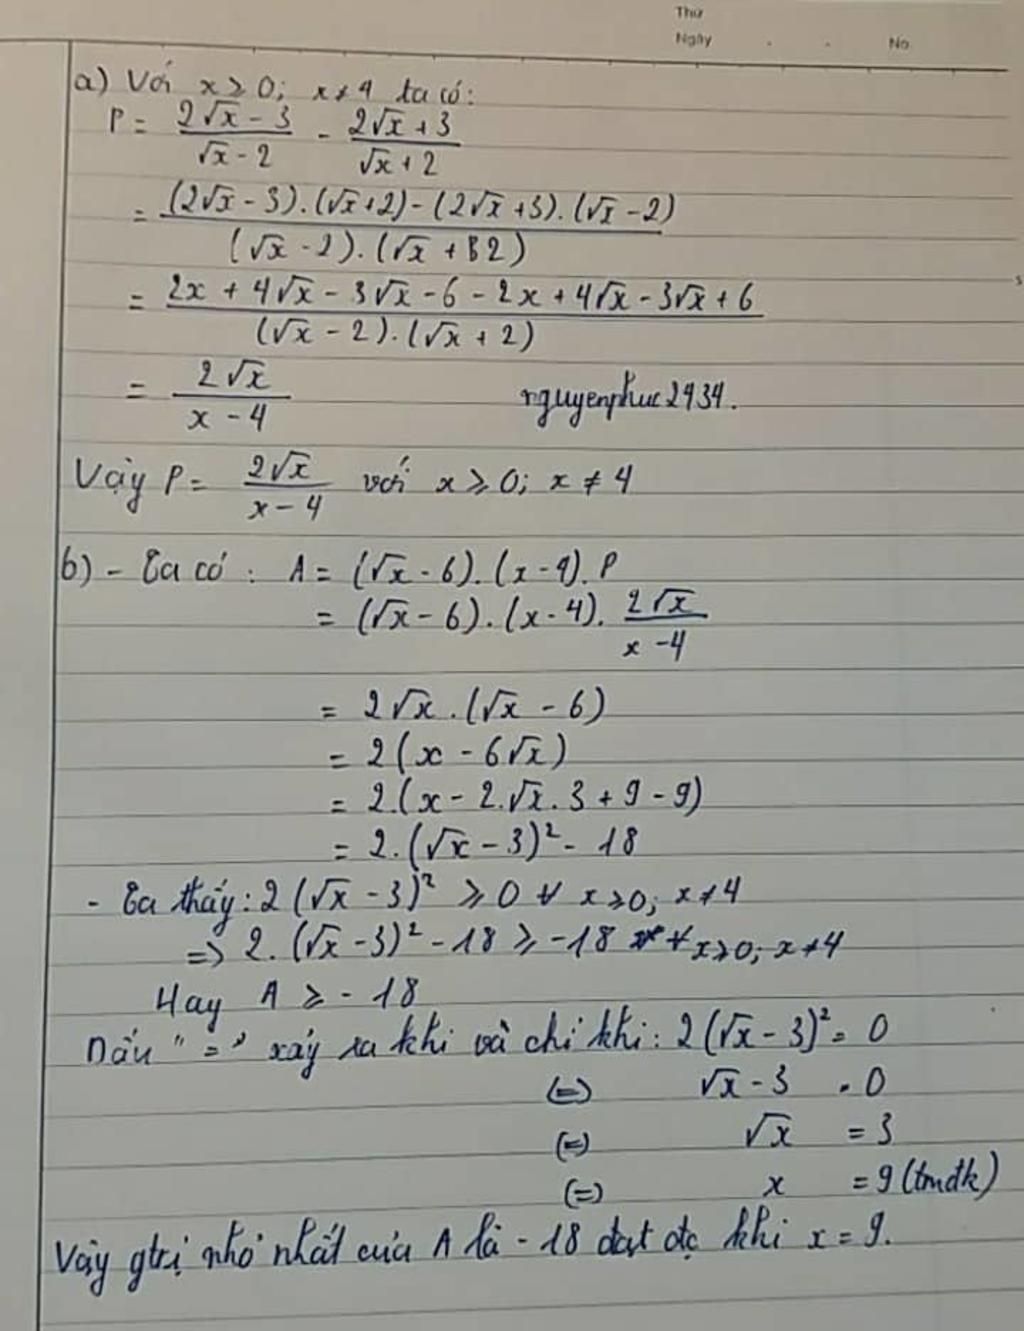 Thứ
Ngày . . No.
a) Với x ≥ 0; x ≠ 4 ta có:
P = (2√x - 3)/(√x - 2) - (2√x + 3)/(√x + 2)
= ((2√x - 3).(√x + 2) - (2√x + 3).(√x - 2))/((√x - 2).(√x + 2))
= (2x + 4√x - 3√x - 6 - 2x + 4√x - 3√x + 6)/((√x - 2).(√x + 2))
= 2√x/(x - 4) nguyenphuc2434.
Vậy P = 2√x/(x - 4) với x ≥ 0; x ≠ 4
b) - Ta có: A = (√x - 6).(x - 4).P
= (√x - 6).(x - 4). 2√x/(x - 4)
= 2√x.(√x - 6)
= 2(x - 6√x)
= 2.(x - 2.√x.3 + 9 - 9)
= 2.(√x - 3)² - 18
- Ta thấy: 2(√x - 3)² ≥ 0 ∀ x ≥ 0; x ≠ 4
=> 2.(√x - 3)² - 18 ≥ -18 ∀ x ≥ 0; x ≠ 4
Hay A ≥ - 18
Dấu "=" xảy ra khi và chỉ khi: 2(√x - 3)² = 0
(=) √x - 3 = 0
(=) √x = 3
(=) x = 9 (tmđk)
Vậy gtrị nhỏ nhất của A là - 18 đạt đc khi x = 9.